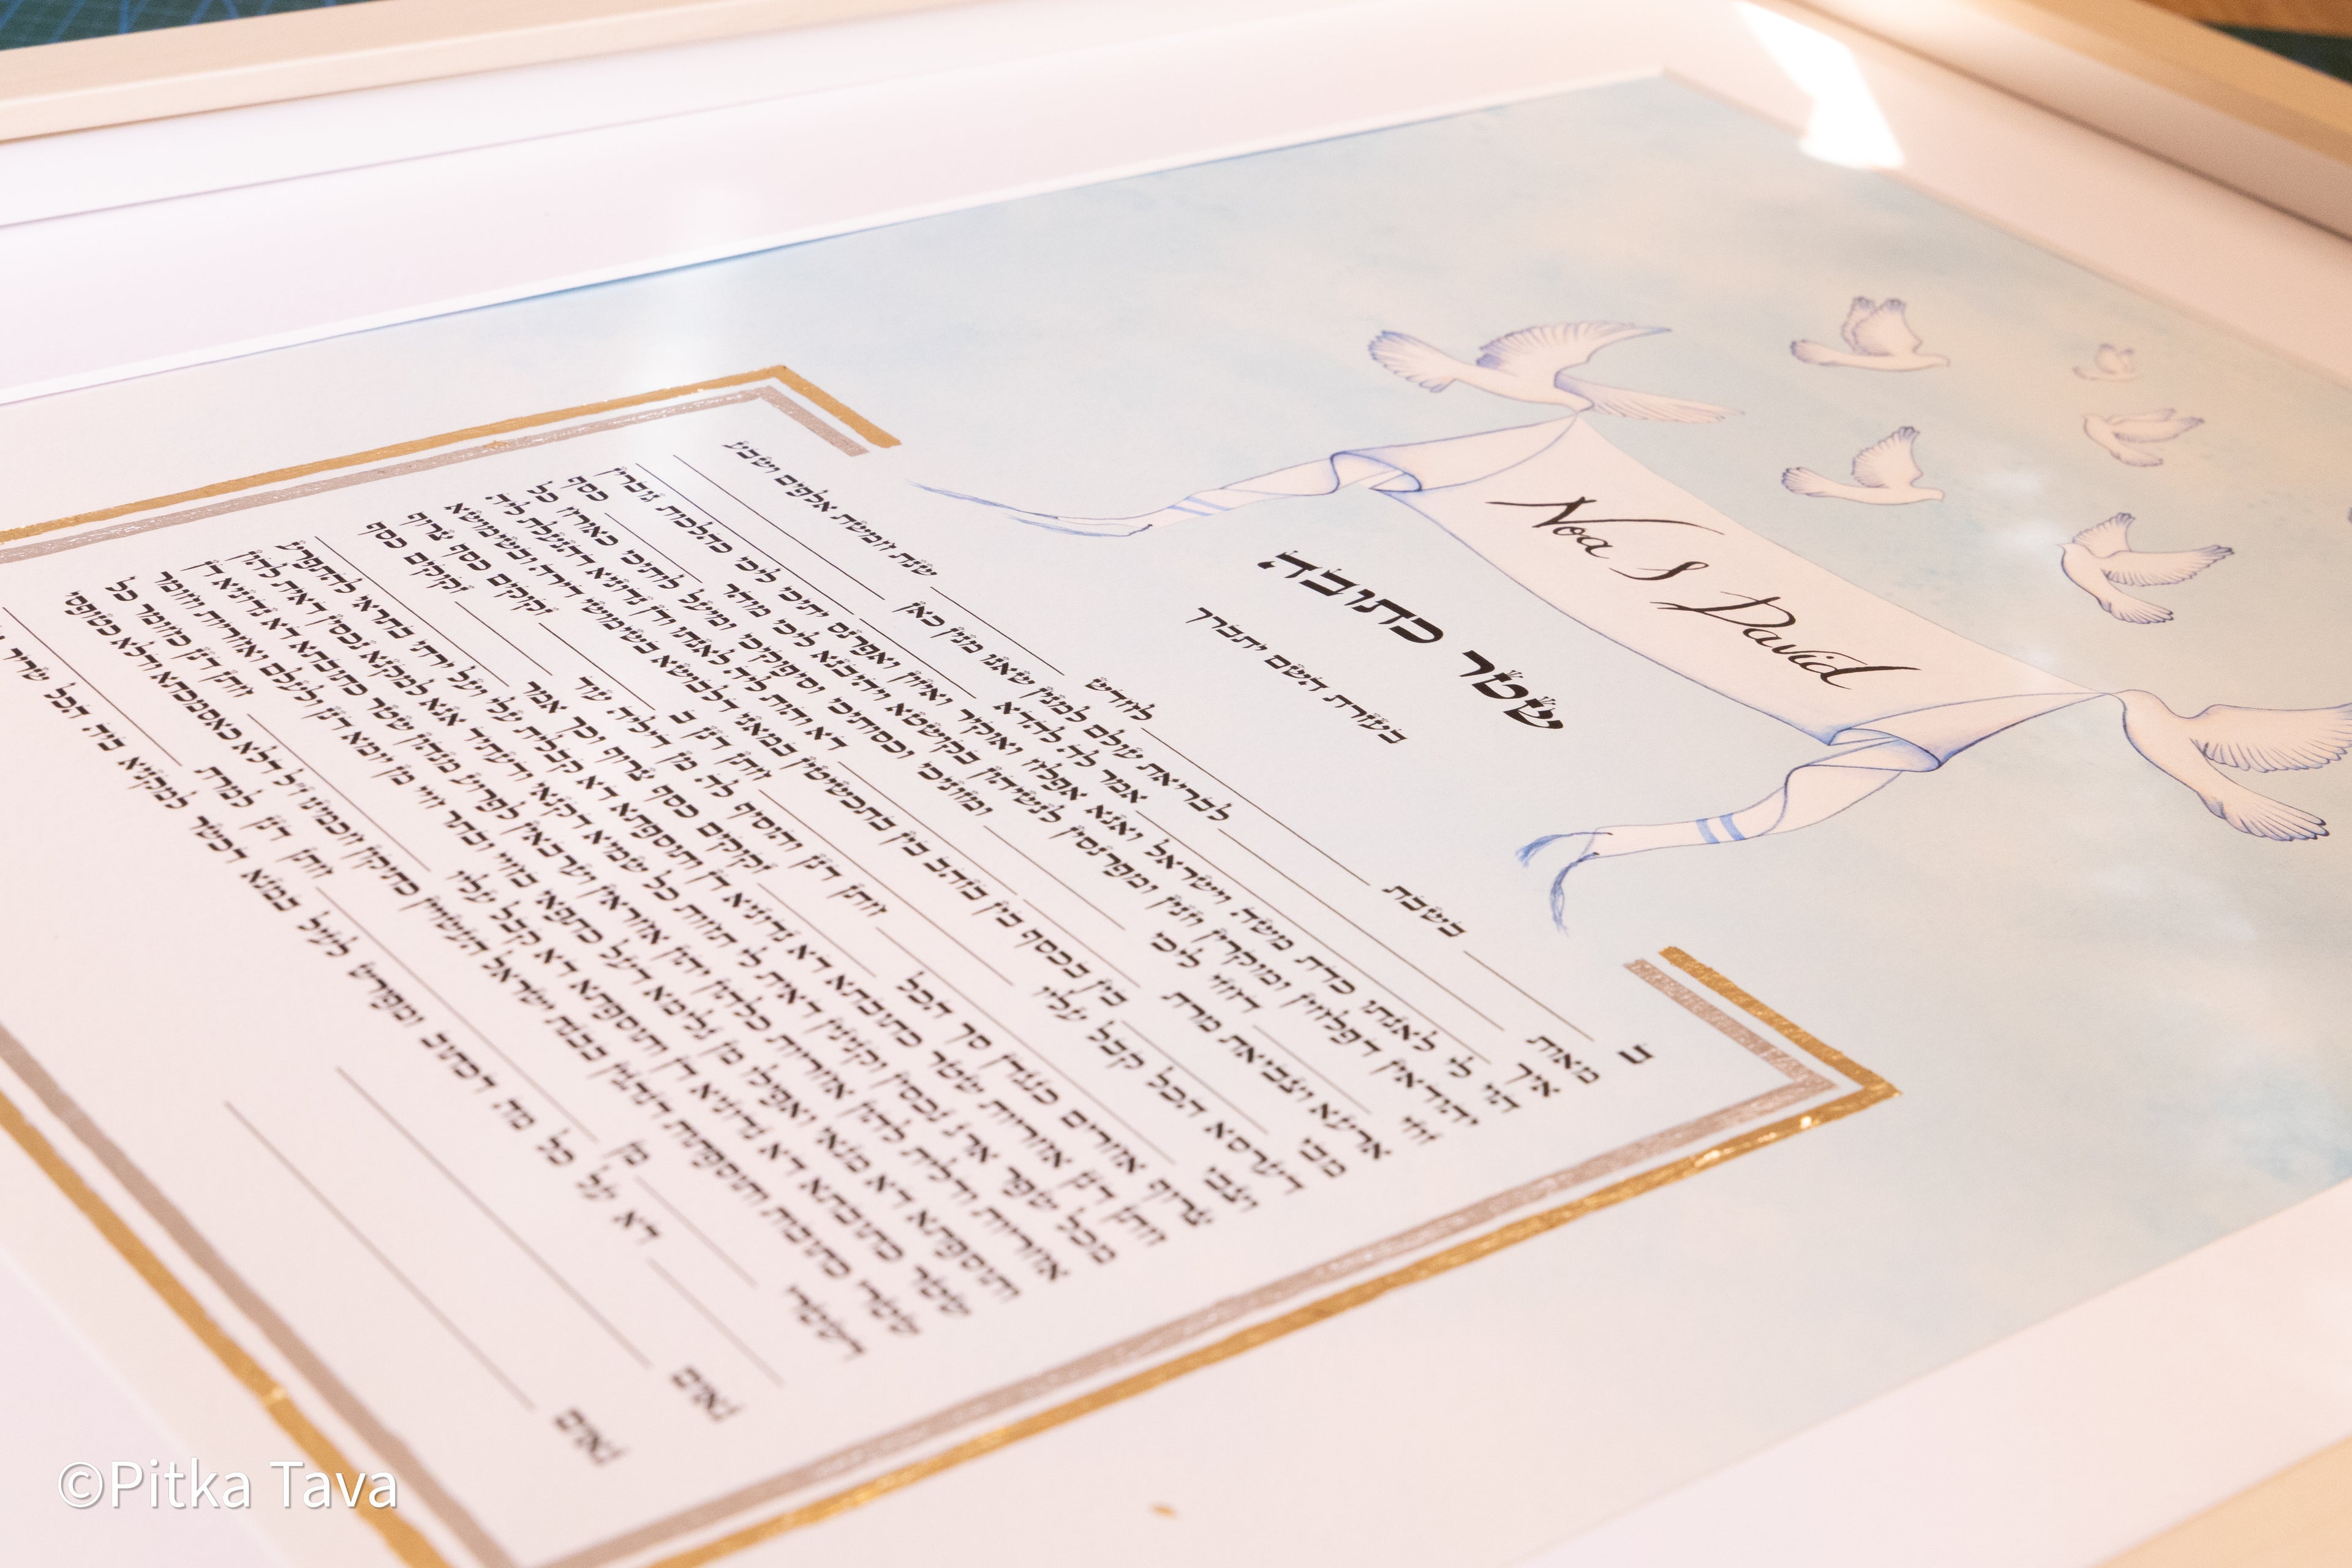 Noa & David
שטר כתובה
בעזרת השם יתברך
ב ____ בשבת ____ לחודש ____ שנת חמשת אלפים ושבע
מאות ____ לבריאת עולם למנין שאנו מנין כאן ____
איך ____ אמר לה להדא ____
הוי לי לאנתו כדת משה וישראל ואנא אפלח ואוקיר ואיזון ואפרנס יתיכי ליכי כהלכות גוברין
יהודאין דפלחין ומוקרין וזנין ומפרנסין לנשיהון בקושטא ויהיבנא ליכי מוהר ____ כסף
זוזי ____ דחזי ליכי ____ ומזוניכי וכסותיכי וסיפוקיכי ומיעל לותיכי כאורח כל
ארעא וצביאת מרת ____ דא והות ליה לאנתו ודן נדוניא דהנעלת ליה
מבי ____ בין בכסף בין בזהב בין בתכשיטין במאני דלבושא בשימושי דירה ובשימושא
דערסא הכל קבל עליו ____ חתן דנן ב ____ זקוקים כסף צרוף
וצבי ____ חתן דנן והוסיף לה מן דיליה עוד ____ זקוקים כסף
צרוף אחרים כנגדן סך הכל ____ זקוקים כסף צרוף וכך אמר ____
חתן דנן אחריות שטר כתובתא דא נדוניא דן ותוספתא דא קבלית עלי ועל ירתי בתראי להתפרע
מכל שפר ארג נכסין וקנינין דאית לי תחות כל שמיא דקנאי ודעתיד אנא למקנא נכסין דאית להון
אחריות ודלית להון אחריות כלהון יהון אחראין וערבאין לפרוע מנהון שטר כתובתא דא נדוניא דן
ותוספתא דא מנאי ואפילו מן גלימא דעל כתפאי בחיי ובתר חיי מן יומא דנן ולעלם ואחריות וחומר
שטר כתובתא דא נדוניא דן ותוספתא דא קבל עליו ____ חתן דנן כחומר כל
שטרי כתובות ותוספתות דנהגין בבנת ישראל העשויין כתיקון חכמינו ז״ל דלא כאסמכתא ודלא כטופסי
דשטרי ____ בן ____ חתן דנן למרת ____
____ דא על כל מה דכתוב ומפורש לעיל במנא דכשר למקניא ביה הכל שריר
נאום ____
נאום ____
©Pitka Tava